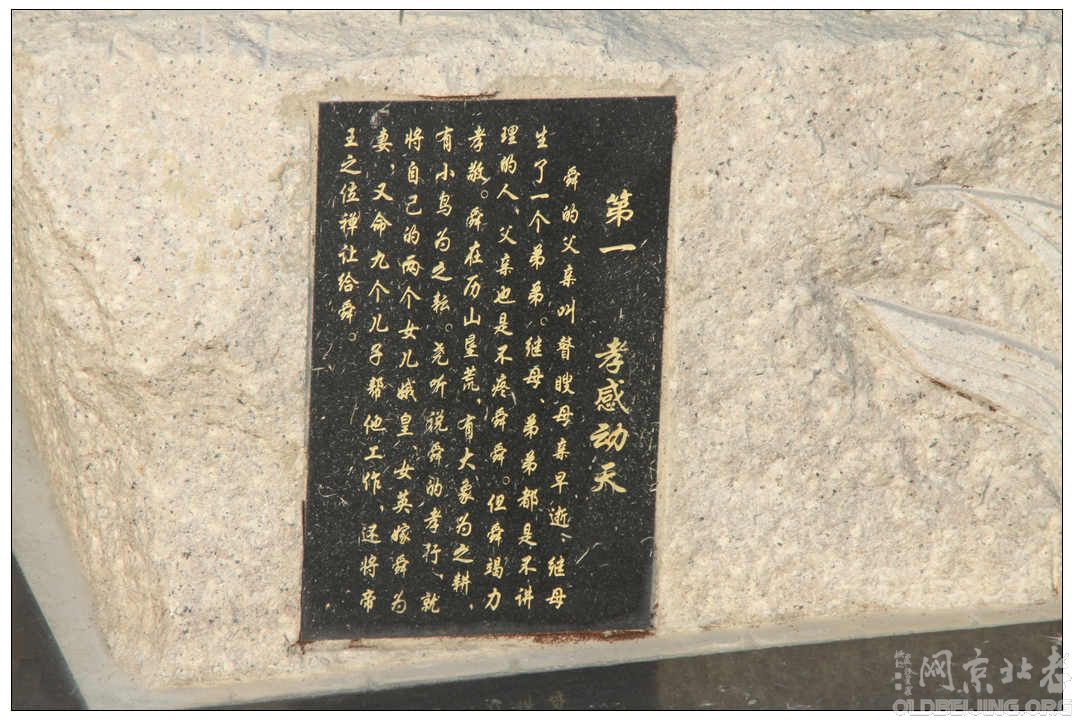 第一 孝感动天
舜的父亲叫瞽瞍母亲早逝、继母
生了一个弟弟。继母、弟弟都是不讲
理的人、父亲也是不疼舜舜。但舜竭力
孝敬。舜在历山垦荒，有大象为之耕，
有小鸟为之耘。尧听说舜的孝行、就
将自己的两个女儿娥皇、女英嫁舜为
妻，又命九个儿子帮他工作，还将帝
王之位禅让给舜。
网京北老
OLDBEIJING.ORG